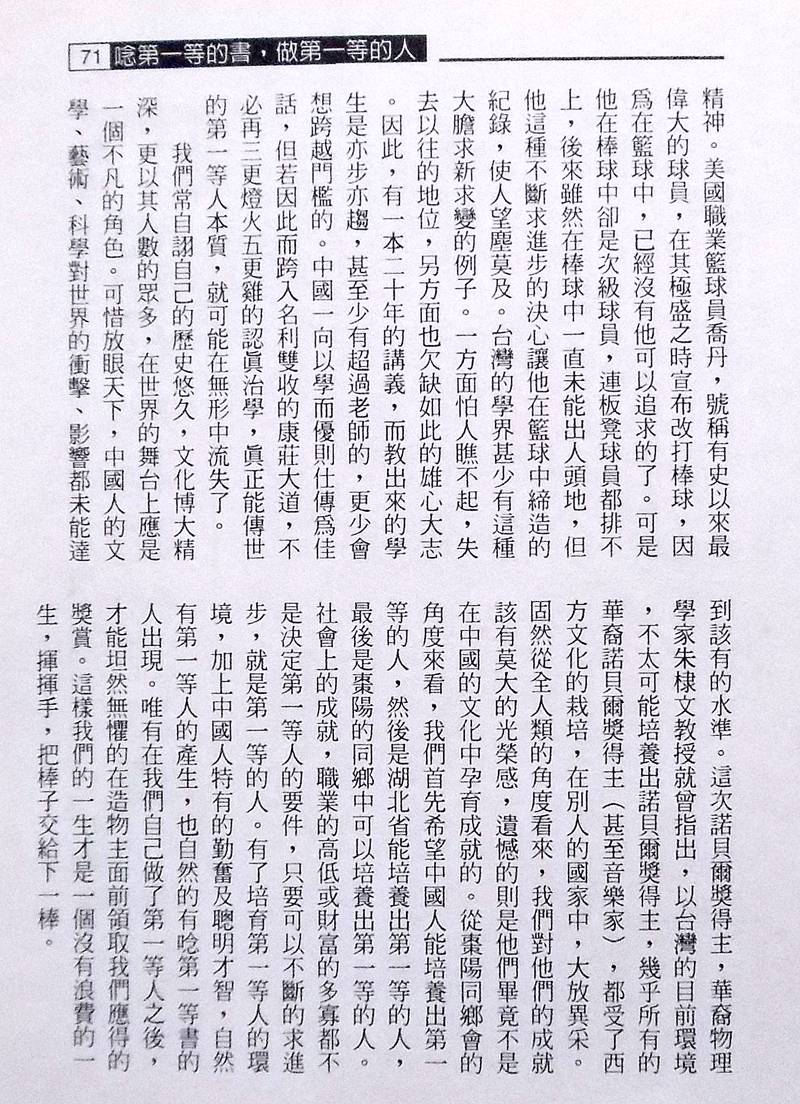 71 唸第一等的書，做第一等的人
精神。美國職業籃球員喬丹，號稱有史以來最
偉大的球員，在其極盛之時宣布改打棒球，因
爲在籃球中，已經沒有他可以追求的了。可是
他在棒球中卻是次級球員，連板凳球員都排不
上，後來雖然在棒球中一直未能出人頭地，但
他這種不斷求進步的決心讓他在籃球中締造的
紀錄，使人望塵莫及。台灣的學界甚少有這種
大膽求新求變的例子。一方面怕人瞧不起，失
去以往的地位，另方面也欠缺如此的雄心大志
。因此，有一本二十年的講義，而教出來的學
生是亦步亦趨，甚至少有超過老師的，更少會
想跨越門檻的。中國一向以學而優則仕傳爲佳
話，但若因此而跨入名利雙收的康莊大道，不
必再三更燈火五更雞的認眞治學，眞正能傳世
的第一等人本質，就可能在無形中流失了。
我們常自詡自己的歷史悠久，文化博大精
深，更以其人數的眾多，在世界的舞台上應是
一個不凡的角色。可惜放眼天下，中國人的文
學、藝術、科學對世界的衝擊、影響都未能達
到該有的水準。這次諾貝爾獎得主，華裔物理
學家朱棣文教授就曾指出，以台灣的目前環境
，不太可能培養出諾貝爾獎得主，幾乎所有的
華裔諾貝爾獎得主（甚至音樂家），都受了西
方文化的栽培，在別人的國家中，大放異采。
固然從全人類的角度看來，我們對他們的成就
該有莫大的光榮感，遺憾的則是他們畢竟不是
在中國的文化中孕育成就的。從棗陽同鄉會的
角度來看，我們首先希望中國人能培養出第一
等的人，然後是湖北省能培養出第一等的人，
最後是棗陽的同鄉中可以培養出第一等的人。
社會上的成就，職業的高低或財富的多寡都不
是決定第一等人的要件，只要可以不斷的求進
步，就是第一等的人。有了培育第一等人的環
境，加上中國人特有的勤奮及聰明才智，自然
有第一等人的產生，也自然的有唸第一等書的
人出現。唯有在我們自己做了第一等人之後，
才能坦然無懼的在造物主面前領取我們應得的
獎賞。這樣我們的一生才是一個沒有浪費的一
生，揮揮手，把棒子交給下一棒。